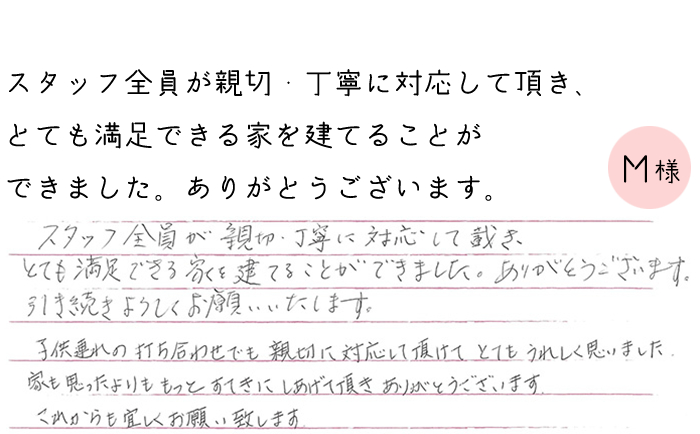 スタッフ全員が親切・丁寧に対応して頂き、
とても満足できる家を建てることが
できました。ありがとうございます。
M様
スタッフ全員が親切・丁寧に対応して戴き、
とても満足できる家を建てることができました。ありがとうございます。
引き続きよろしくお願いいたします。
子供連れの打ち合わせでも親切に対応して頂けてとてもうれしく思いました.
家も思ったよりももっとすてきにしあげて頂きありがとうございます.
これからも宜しくお願い致します.